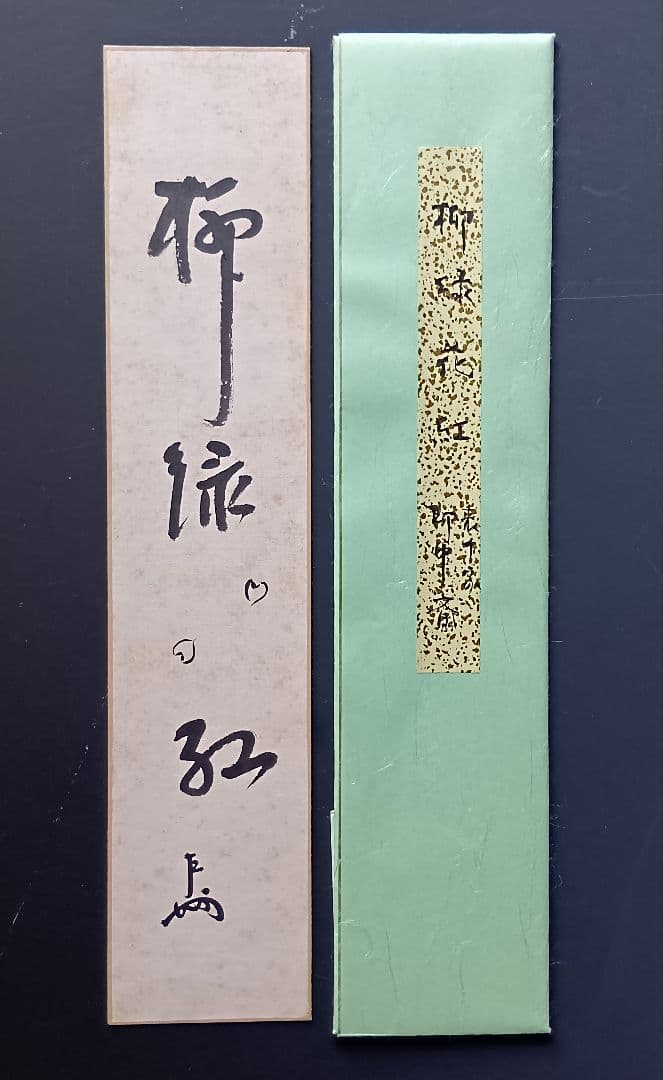 柳緑紅
柳緑花紅
表千家
即中斎